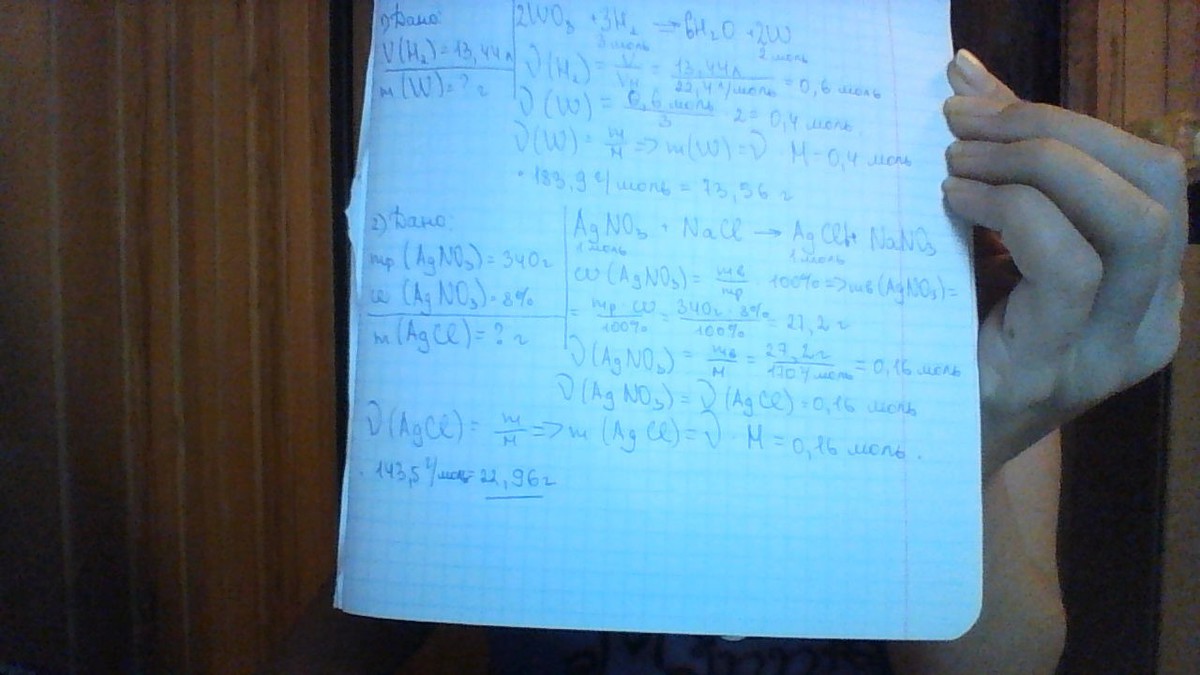 1) Дано:
V(H₂) = 13,44 л
m(W) = ? г
2WO₃ + 3H₂ → 6H₂O + 2W
3 моль 2 моль
ν(H₂) = V/Vм = 13,44 л / 22,4 л/моль = 0,6 моль
ν(W) = 0,6 моль / 3 · 2 = 0,4 моль
ν(W) = m/M => m(W) = ν · M = 0,4 моль
· 183,9 г/моль = 73,56 г
2) Дано:
mр(AgNO₃) = 340 г
ω(AgNO₃) = 8%
m(AgCl) = ? г
AgNO₃ + NaCl → AgCl↓ + NaNO₃
1 моль 1 моль
ω(AgNO₃) = mв/mр · 100% => mв(AgNO₃) =
= mр · ω / 100% = 340 г · 8% / 100% = 27,2 г
ν(AgNO₃) = mв/M = 27,2 г / 170 г/моль = 0,16 моль
ν(AgNO₃) = ν(AgCl) = 0,16 моль
ν(AgCl) = m/M => m(AgCl) = ν · M = 0,16 моль ·
· 143,5 г/моль = 22,96 г